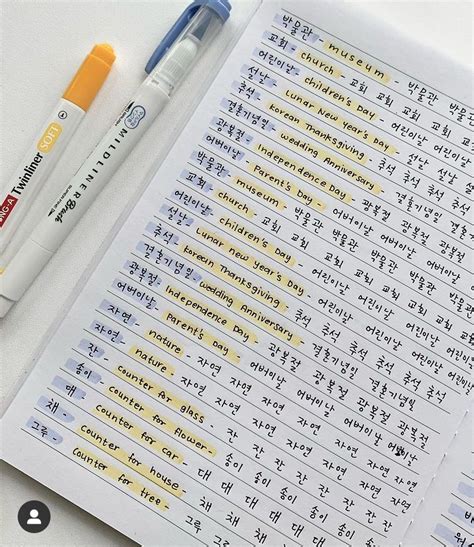 박물관 - museum - 박물관
교회 - church - 교회 교회 교회 교회
어린이날 - children's Day - 어린이날 어린이날
설날 - Lunar new year's Day - 설날 설날 설날
추석 - korean Thanksgiving - 추석 추석 추석 추석
결혼기념일 - wedding Anniversary - 결혼기념일
광복절 - Independence Day - 광복절 광복절
어버이날 - Parent's Day - 어버이날 어버이날
박물관 - museum - 박물관 박물관 박물관
교회 - church - 교회 교회 교회 교회
어린이날 - children's Day - 어린이날 어린이날
설날 - Lunar new year's Day - 설날 설날 설날
추석 - korean Thanksgiving - 추석 추석 추석 추석
결혼기념일 - wedding Anniversary - 결혼기념일
광복절 - Independence Day - 광복절 광복절 광복절
어버이날 - Parent's Day - 어버이날 어버이날 어버이날
자연 - nature - 자연 자연 자연 자연 자연
자연 - nature - 자연 자연 자연 자연 자연
잔 - counter for glass - 잔 잔 잔 잔 잔
송이 - counter for flower - 송이 송이 송이 송이
대 - counter for car - 대 대 대 대 대
채 - counter for house - 채 채 채 채 채
그루 - counter for tree - 그루 그루
NG-A Twinliner SOFT
MILDLINER Brush